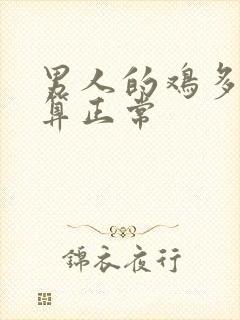 男人的鸡多
算正常
錦衣夜行